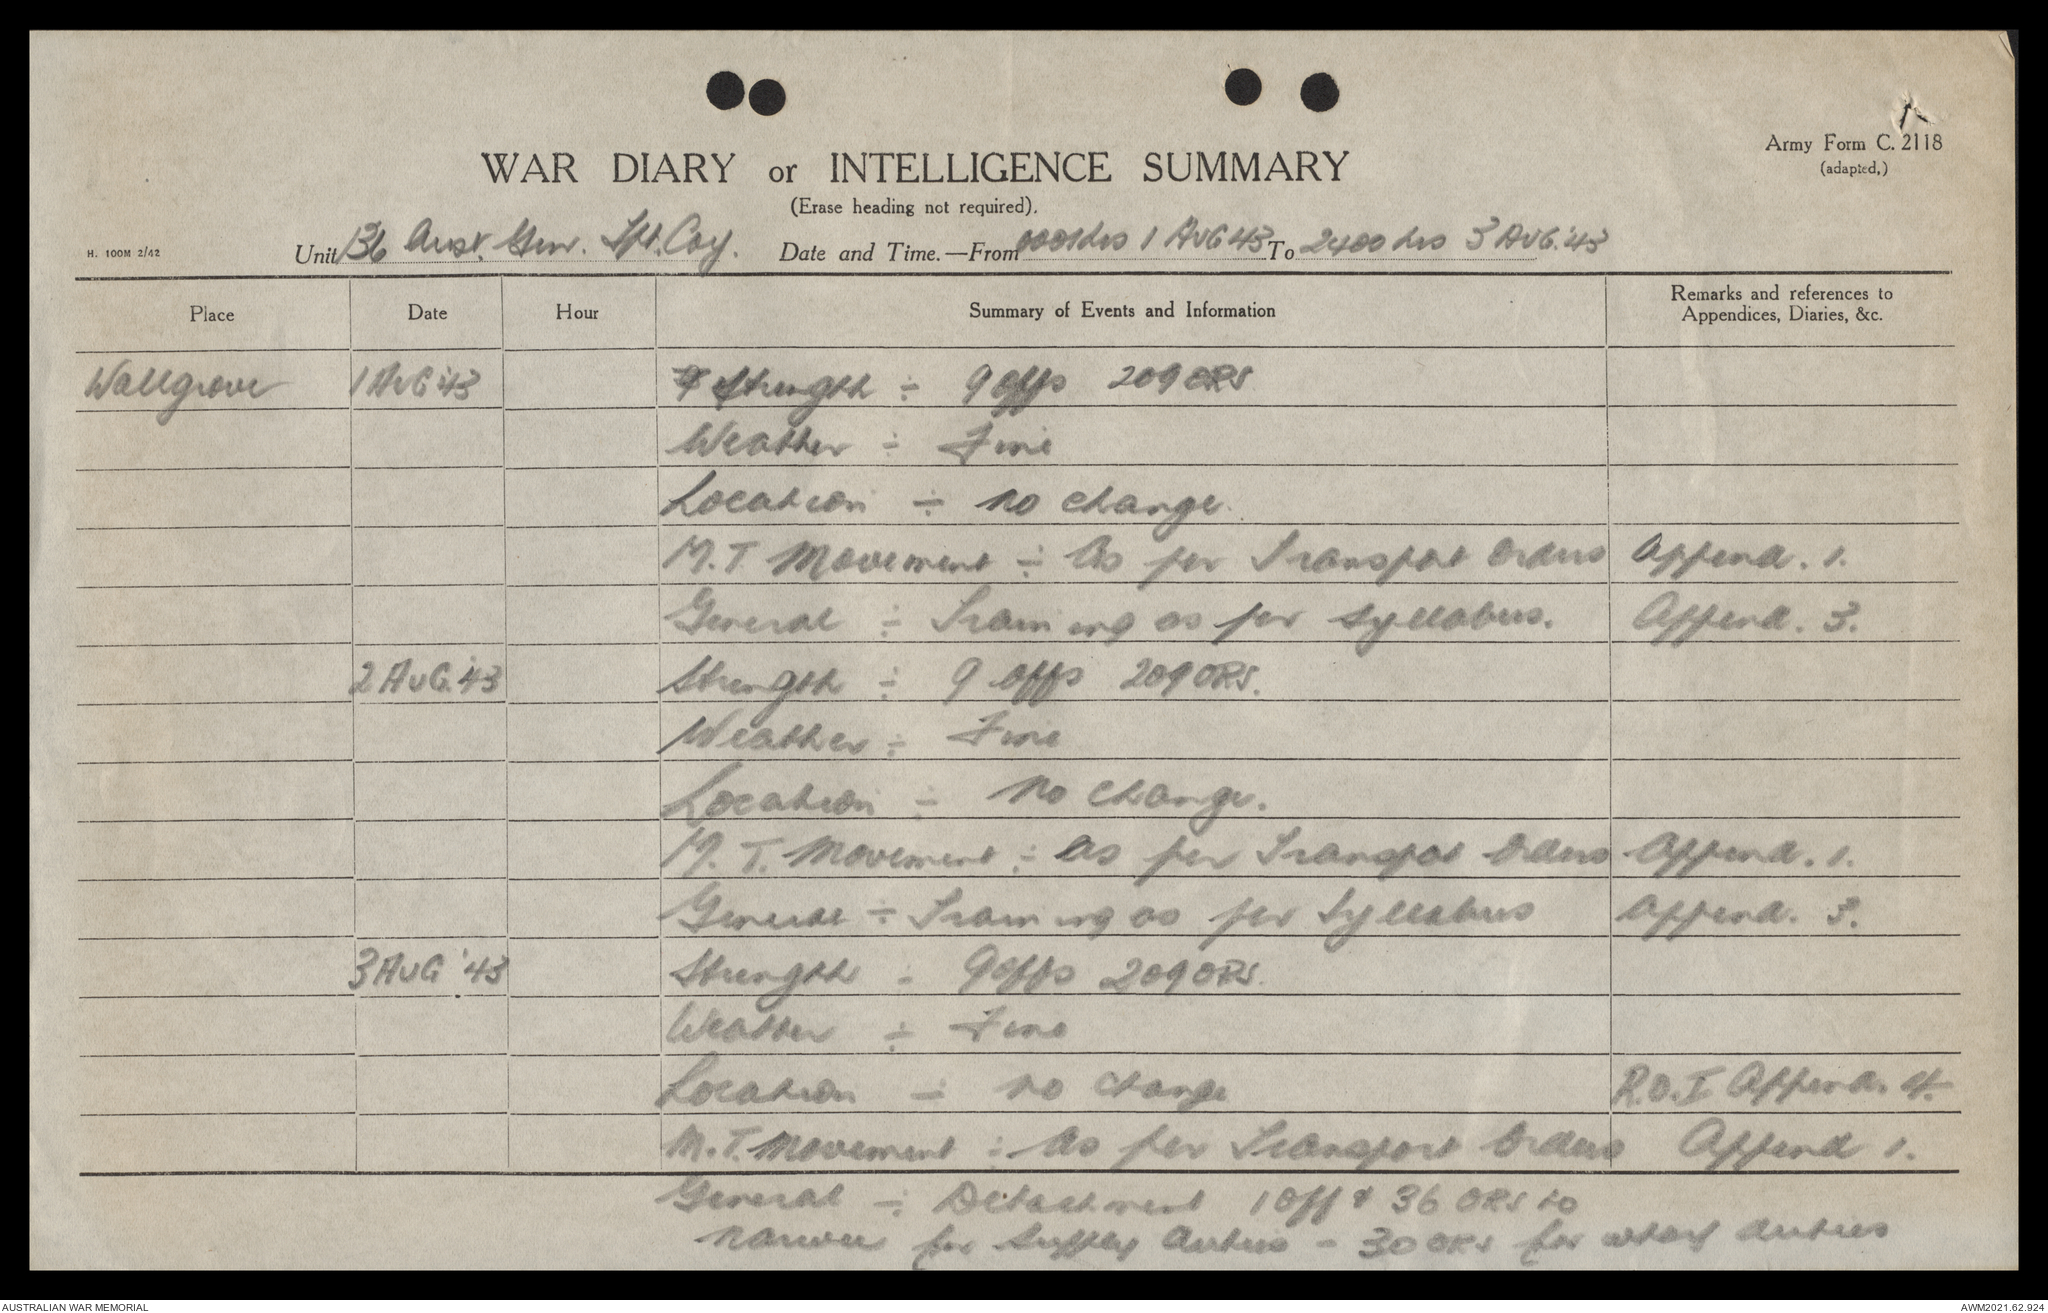 Army Form C. 2118
(adapted.)
WAR DIARY or INTELLIGENCE SUMMARY
(Erase heading not required).
H. 100M 2/42
Unit 136 Aust. Gen. Tpt. Coy. Date and Time.—From 0001 hrs 1 AUG 43 To 2400 hrs 3 AUG. '43
Place Date Hour Summary of Events and Information Remarks and references to
Appendices, Diaries, &c.
Wallgrove 1 AUG '43 Strength ÷ 9 offs 209 ORS
Weather ÷ Fine
Location ÷ no change.
M.T. Movement ÷ As per Transport Orders Append. 1.
General ÷ Training as per syllabus. Append. 3.
2 AUG. '43 Strength ÷ 9 offs 209 ORS.
Weather ÷ Fine
Location ÷ No change.
M.T. Movement ÷ As per Transpot Orders Append. 1.
General ÷ Training as per Syllabus Append. 3.
3 AUG '43 Strength - 9 offs 209 ORS.
Weather ÷ Fine
Location ÷ no change R.O.I Append. 4.
M.T. Movement ÷ As per Transport Orders Append 1.
General ÷ Detachment 1 Off & 36 ORS to
for Supply duties - 30 ORS for wharf duties
AUSTRALIAN WAR MEMORIAL AWM2021.62.924